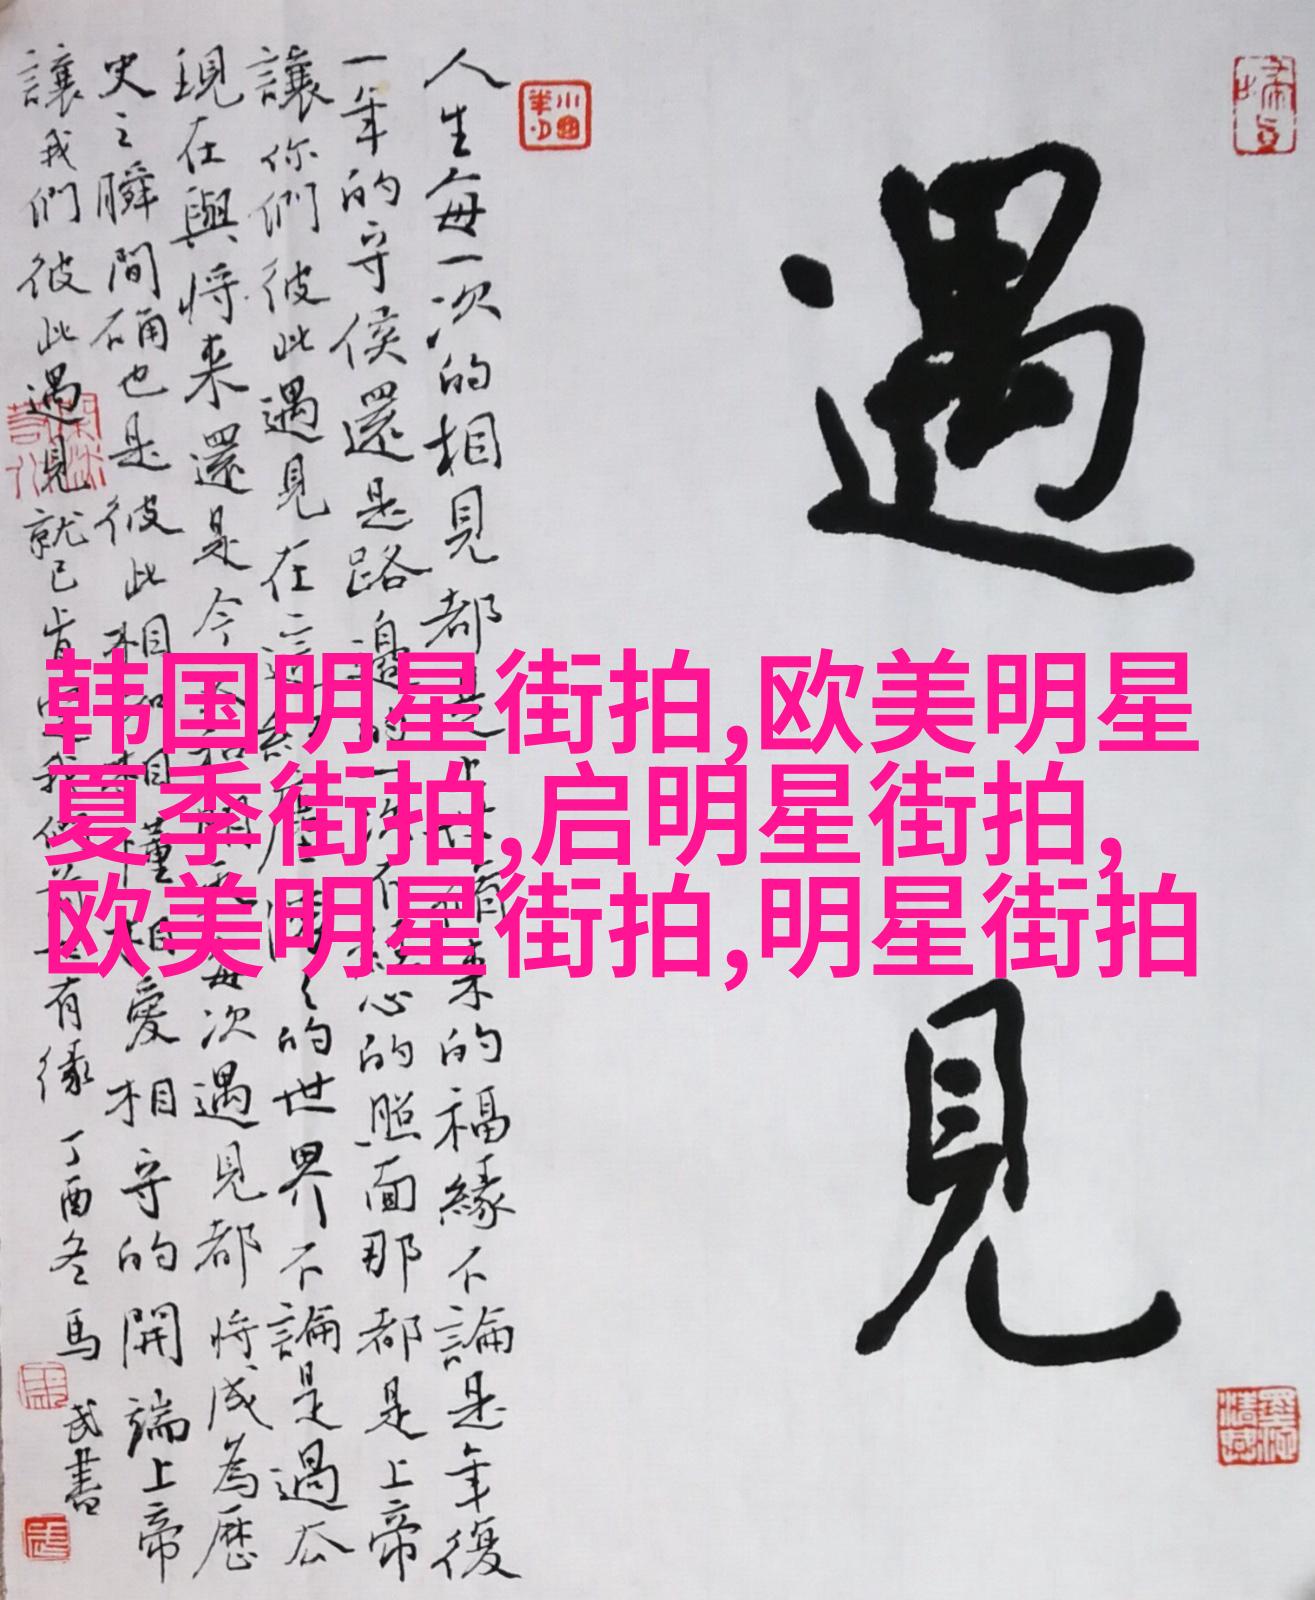 遇見
人生每一次的相見都是上來的福緣不論是年復
一年的守侯還是路邊的一次不心的照面那都是上帝
讓你們彼此遇見在這紅塵的世界不論是過去
現在與將来還是今和明每次遇見都將成為歷
史之瞬間确也是彼此相知相懂相愛相守的開端上帝
讓我們彼此遇見就已肯我們有缘 丁酉冬馬武書
韩国明星街拍,欧美明星
夏季街拍,启明星街拍,
欧美明星街拍,明星街拍